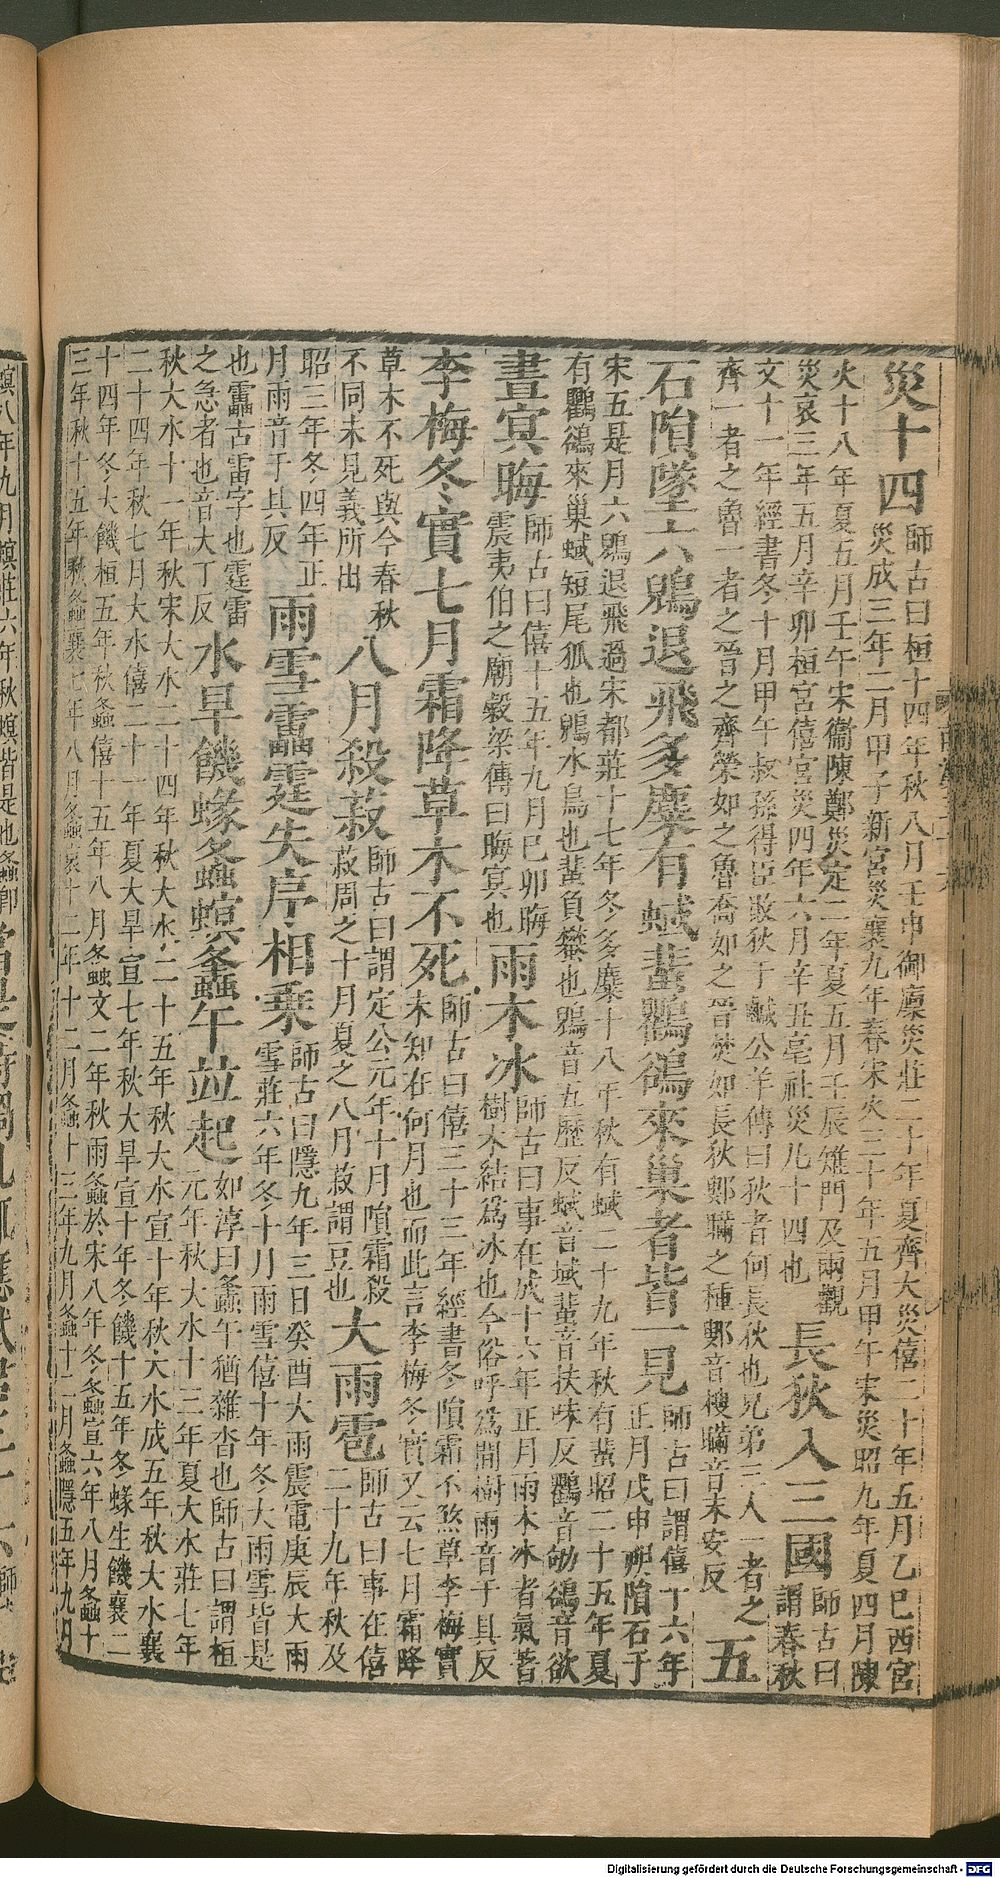 災十四
師古曰桓十四年秋八月壬申御廩災莊二十年夏齊大災僖二十年五月乙巳西宮
災成三年二月甲子新宮災襄九年春宋火三十年五月甲午宋災昭九年夏四月陳
火十八年夏五月壬午宋衞陳鄭災定二年夏五月壬辰雉門及兩觀
災哀三年五月辛卯桓宮僖宮災四年六月辛丑亳社災凡十四也
長狄入三國
師古曰
謂春秋
文十一年經書冬十月甲午叔孫得臣敗狄于鹹公羊傳曰狄者何長狄也兄弟三人一者之
齊一者之魯一者之晉之齊榮如之魯喬如之晉焚如長狄鄋瞞之種鄋音搜瞞音末安反
五
石隕墜六鶂退飛多麋有蜮蜚鸜鵒來巢者皆一見
師古曰謂僖十六年
正月戊申朔隕石于
宋五是月六鶂退飛過宋都莊十七年冬多麋十八年秋有蜮二十九年秋有蜚昭二十五年夏
有鸜鵒來巢蜮短尾狐也鶂水鳥也蜚負蠜也鶂音五歷反蜮音域蜚音扶味反鸜音劬鵒音欲
晝冥晦
師古曰僖十五年九月己卯晦
震夷伯之廟穀梁傳曰晦冥也
雨木冰
師古曰事在成十六年正月雨木冰者氣著
樹木結爲冰也今俗呼爲間樹雨音于具反
李梅冬實七月霜降草木不死
師古曰僖三十三年經書冬隕霜不煞草李梅實
未知在何月也而此言李梅冬實又云七月霜降
草木不死與今春秋
不同未見義所出
八月殺菽
師古曰謂定公元年十月隕霜殺
菽周之十月夏之八月菽謂豆也
大雨雹
師古曰事在僖
二十九年秋及
昭三年冬四年正
月雨音于具反
雨雪靁霆失序相乗
師古曰隱九年三日癸酉大雨震電庚辰大雨
雪莊六年冬十月雨雪僖十年冬大雨雪皆是
也靁古雷字也霆雷
之急者也音大丁反
水旱饑蝝螽螟螽午竝起
如淳曰螽午猶雜沓也師古曰謂桓
元年秋大水十三年夏大水莊七年
秋大水十一年秋宋大水二十四年秋大水二十五年秋大水宣十年秋大水成五年秋大水襄
二十四年秋七月大水僖二十一年夏大旱宣七年秋大旱宣十年冬饑十五年冬蝝生饑襄二
十四年冬大饑桓五年秋螽僖十五年八月螽文二年秋雨螽於宋八年冬螽宣六年八月螽十
三年秋十五年秋螽襄七年八月螽哀十二年十二月螽十三年九月螽十二月螽隱五年九月
螟八年九月螟莊六年秋螟皆是也螽
Digitalisierung gefördert durch die Deutsche Forschungsgemeinschaft - DFG